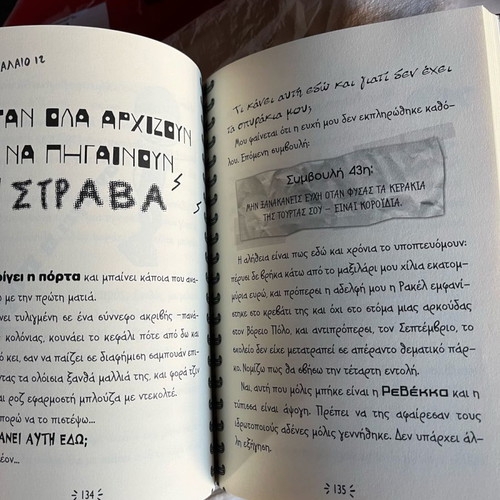 ΑΛΑΙΟ 12
ΤΑΝ ΟΛΑ ΑΡΧΙΖΟΥΝ
ΝΑ ΠΗΓΑΙΝΟΥΝ
ΣΤΡΑΒΑ
οίγει η πόρτα και μπαίνει κάποια που ανα-
ω με την πρώτη ματιά.
νει τυλιγμένη σε ένα σύννεφο ακριβής -πανά-
κολόνιας, κουνάει το κεφάλι πότε από δω και
ό κει, σαν να παίζει σε διαφήμιση σαμπουάν επι-
ντας τα ολόισια ξανθά μαλλιά της, και φορά τζιν
αι ροζ εφαρμοστή μπλούζα με ντεκολτέ.
πορώ να το πιστέψω...
ΑΝΕΙ ΑΥΤΗ ΕΔΩ;
λέον...
134
Τι κάνει αυτή εδώ και γιατί δεν έχει
τα σπυράκια μου;
Μου φαίνεται ότι η ευχή μου δεν εκπληρώθηκε καθό-
λου. Επόμενη συμβουλή:
Συμβουλή 43η:
ΜΗΝ ΞΑΝΑΚΑΝΕΙΣ ΕΥΧΗ ΟΤΑΝ ΦΥΣΑΣ ΤΑ ΚΕΡΑΚΙΑ
ΤΗΣ ΤΟΥΡΤΑΣ ΣΟΥ – ΕΙΝΑΙ ΚΟΡΟΪΔΙΑ.
Η αλήθεια είναι πως εδώ και χρόνια το υποπτευόμουν:
πέρυσι δε βρήκα κάτω από το μαξιλάρι μου χίλια εκατομ-
μύρια ευρώ, και πρόπερσι η αδελφή μου η Ρακέλ εμφανί-
στηκε στο κρεβάτι της και όχι στο στόμα μιας αρκούδας
στον Βόρειο Πόλο, και αντιπρόπερσι, τον Σεπτέμβριο, το
σχολείο δεν είχε μετατραπεί σε απέραντο θεματικό πάρ-
κο. Νομίζω πως θα σβήσω την τέταρτη εντολή.
Ναι, αυτή που μόλις μπήκε είναι η Ρεβέκκα και η
τύπισσα είναι άψογη. Πρέπει να της αφαίρεσαν τους
ιδρωτοποιούς αδένες μόλις γεννήθηκε. Δεν υπάρχει άλ-
λη εξήγηση.
135